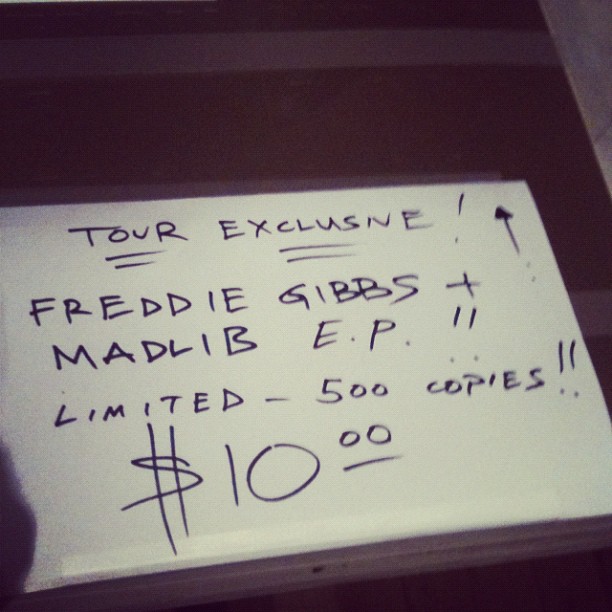 TOUR EXCLUSIVE!
FREDDIE GIBBS +
MADLIB E.P. !!
LIMITED - 500 COPIES!!
$10.00